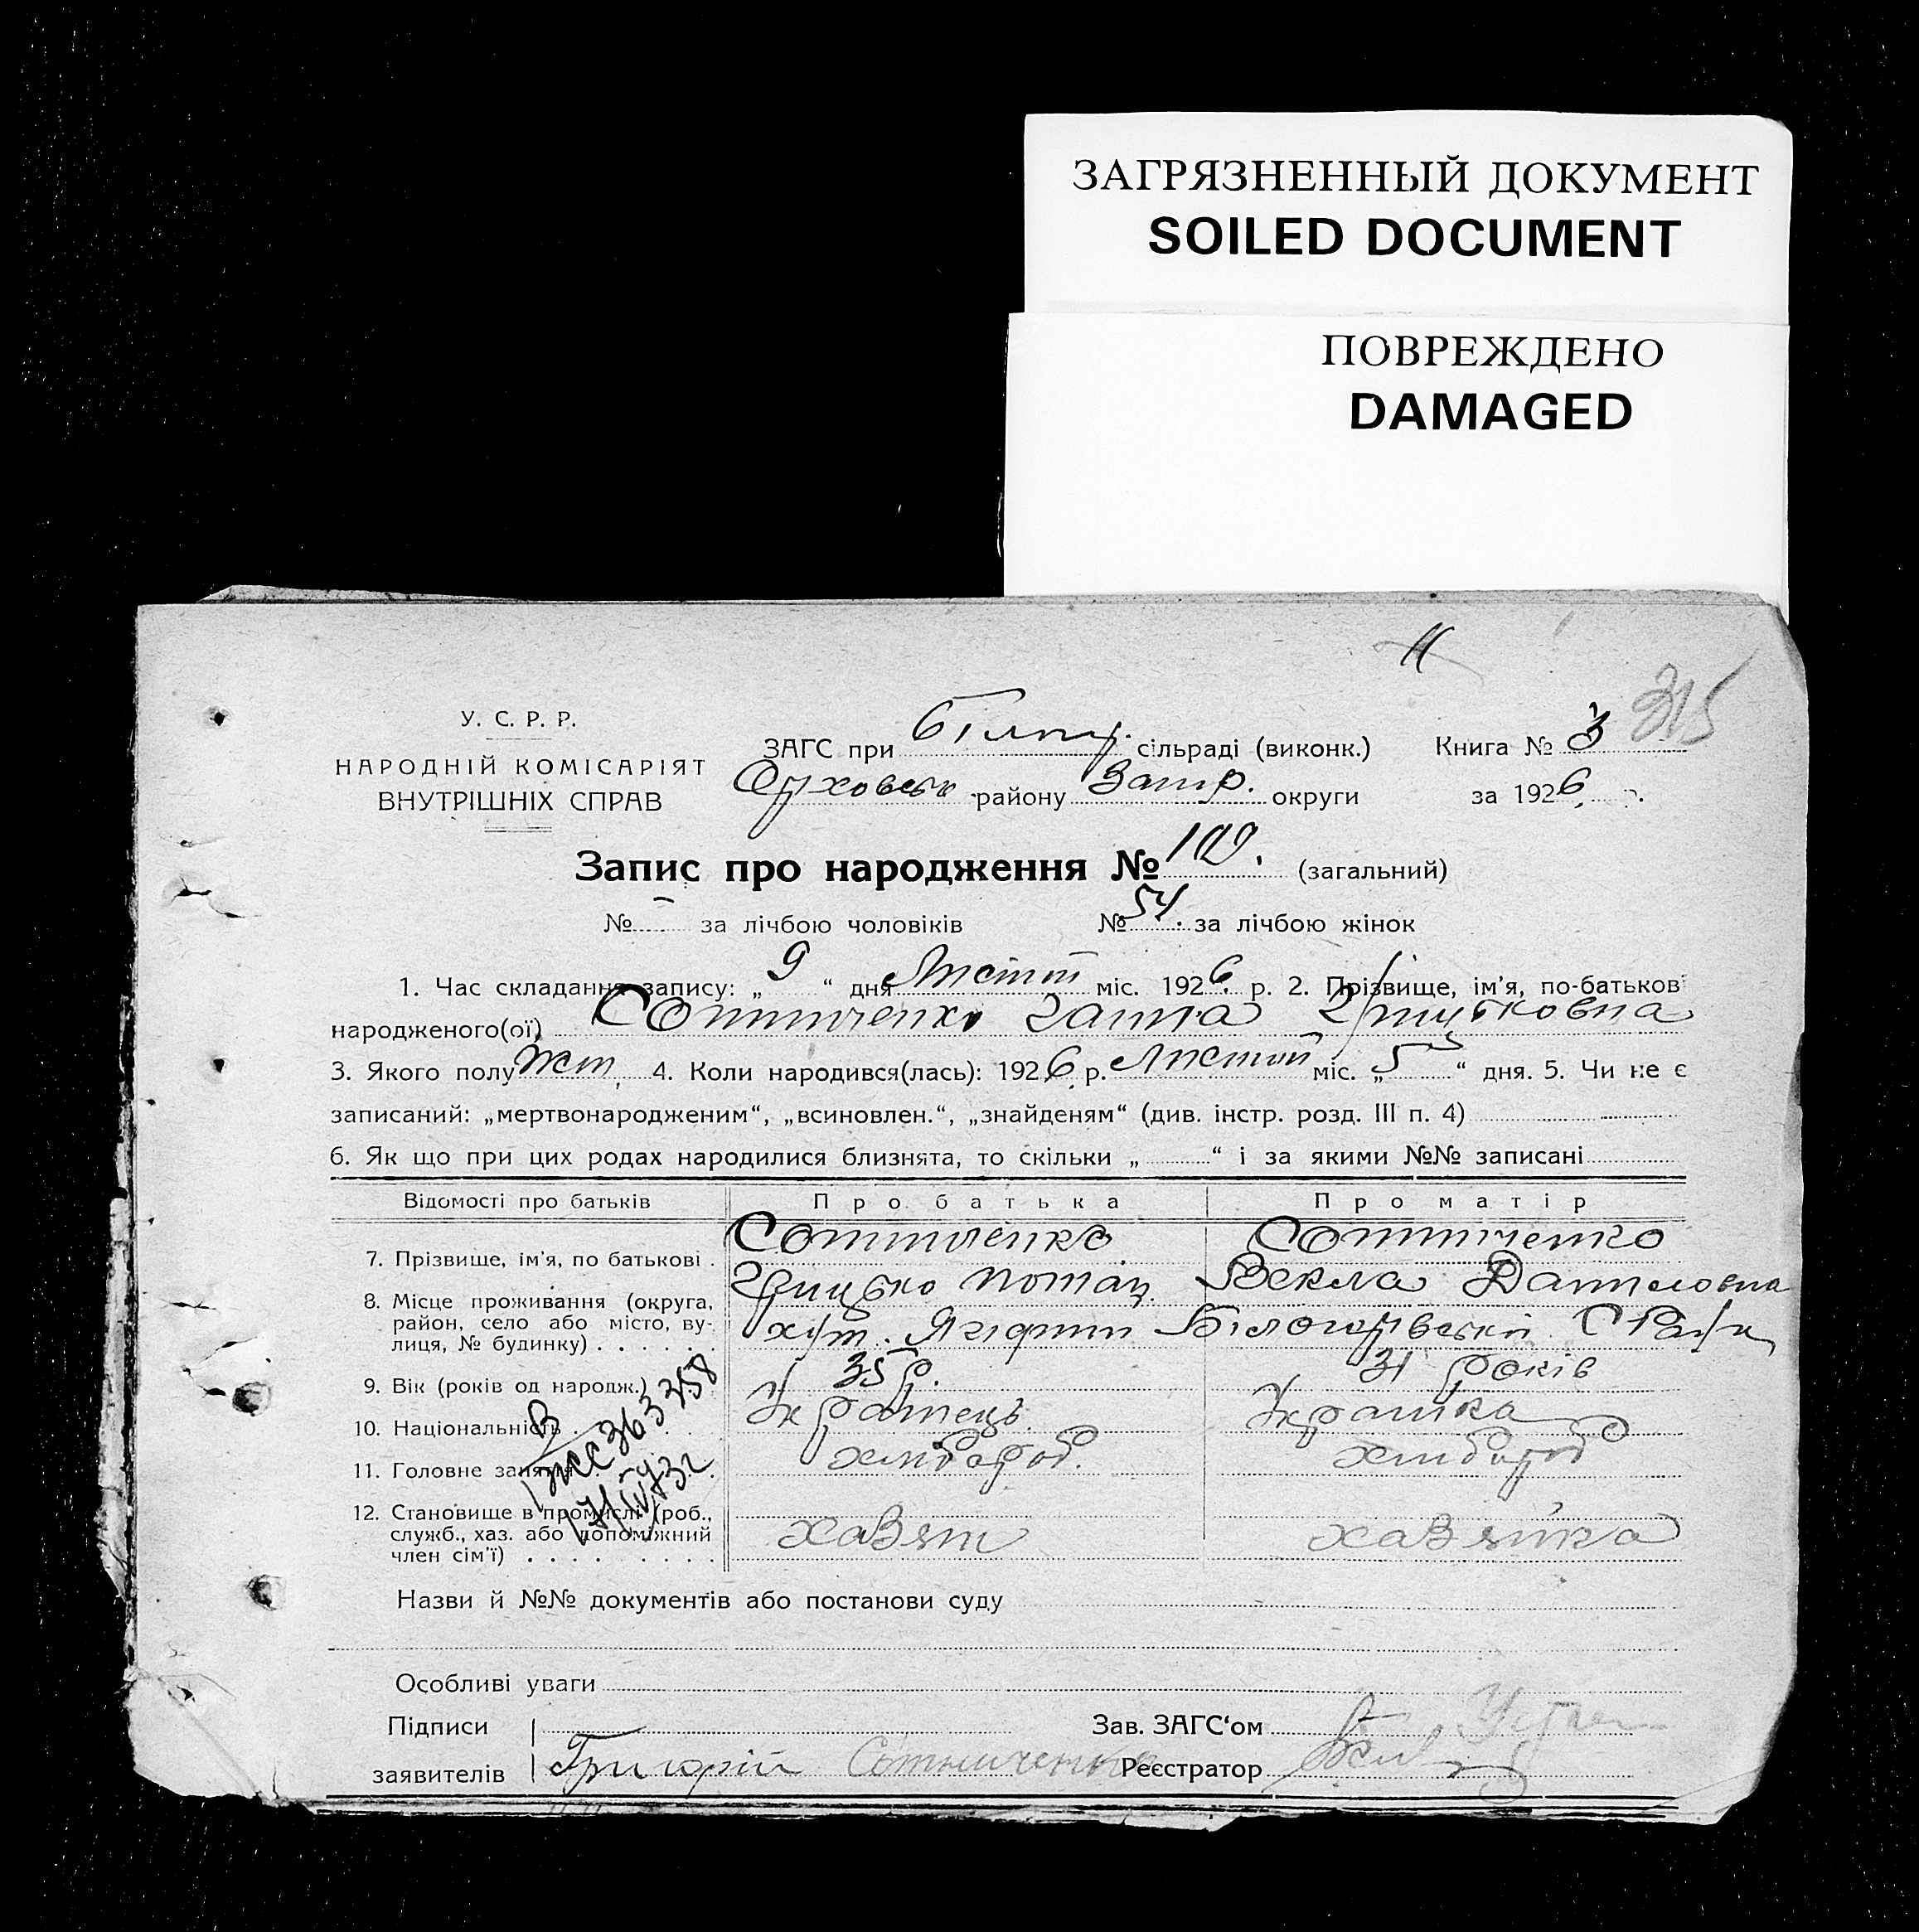 ЗАГРЯЗНЕННЫЙ ДОКУМЕНТ
SOILED DOCUMENT
ПОВРЕЖДЕНО
DAMAGED
315
У. С. Р. Р.
НАРОДНІЙ КОМІСАРІЯТ
ВНУТРІШНІХ СПРАВ
ЗАГС при сільраді (виконк.) Книга № 3
району Запр. округи за 1926
Запис про народження № (загальний)
№ - за лічбою чоловіків № 54. за лічбою жінок
1. Час складання запису: „ 9 “ дня Листоп міс. 1926. р. 2. Прізвище, ім'я, по-батьков
народженого(ої) Сотниченко Ганна Грицьковна
3. Якого полу Жін, 4. Коли народився(лась): 1926 р. Листоп міс. „ 5 “ дня. 5. Чи не є
записаний: „мертвонародженим“, „всиновлен.“, „знайденям“ (див. інстр. розд. III п. 4)
6. Як що при цих родах народилися близнята, то скільки „ “ і за якими №№ записані
Відомості про батьків Про батька Про матір
7. Прізвище, ім'я, по батькові . Сотниченко Сотниченко
Грицько Потап. Векла Даниловна
8. Місце проживання (округа,
район, село або місто, ву-
лиця, № будинку) . . . . . . хут. Білогорівської С Ради
9. Вік (років од народж.) 35 р. 31 років
10. Національність . Українець Українка
11. Головне заняття хлібороб. хлібороб
12. Становище в промислі (роб.,
служб., хаз. або допоміжний
член сім'ї) . . . . . . . . . хазяїн хазяйка
363358
Назви й №№ документів або постанови суду
Особливі уваги
Підписи Зав. ЗАГС'ом
заявителів Григорій Сотниченко Реєстратор